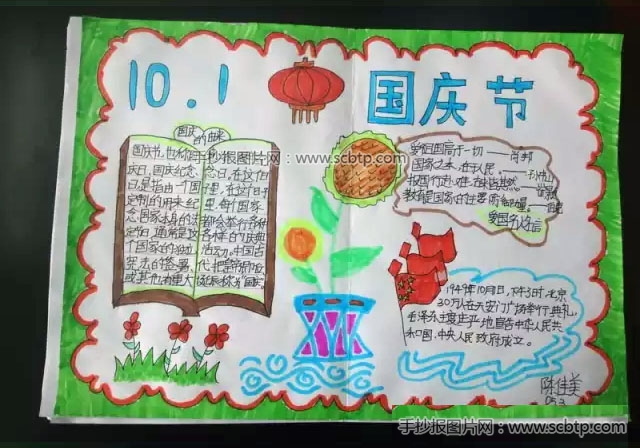 10.1
国庆节
手抄报图片网：www.scbtp.com
国庆
的由来
国庆节,也称
庆日、国庆纪念
日,是指由一个国
定制的用来纪
念国家本身的法
定节日,通常是这
个国家的独立、
宪法的签署、
或其他有重大
念日。在这
每个国家
都会举行
庆典
活动。中国古
代把皇帝即位
爱祖国高于一切——肖邦
国家之本,在于人民。——孙中山
教育是国家的主要
爱国名人名言
1949年10月1日,下午3时,北京
30万人在天安门广场举行典礼,
毛泽东主席庄严地宣告中华人民共
和国,中央人民政府成立。
陈佳美
手抄报图片网：www.scbtp.com